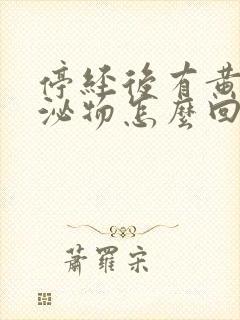 停經後有黃
泌物怎麼回
蕭羅宋